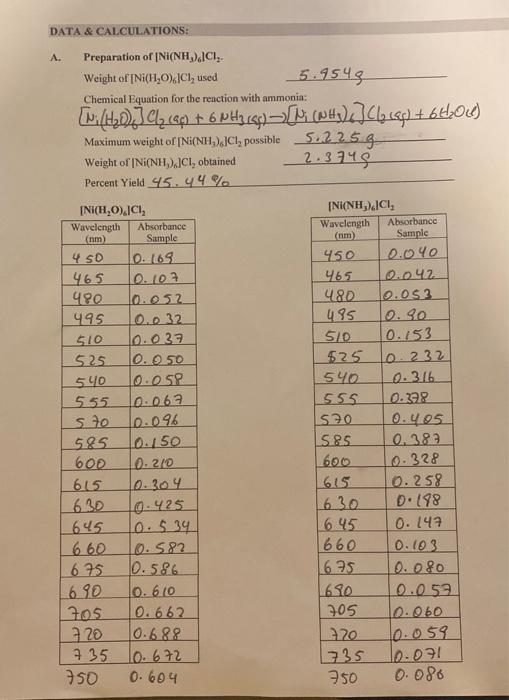 DATA & CALCULATIONS:
A. Preparation of [Ni(NH₃)₆]Cl₂.
Weight of [Ni(H₂O)₆]Cl₂ used 5.954g
Chemical Equation for the reaction with ammonia:
[Ni(H₂O)₆]Cl₂(aq) + 6NH₃(aq) → [Ni(NH₃)₆]Cl₂(aq) + 6H₂O(l)
Maximum weight of [Ni(NH₃)₆]Cl₂ possible 5.225g
Weight of [Ni(NH₃)₆]Cl₂ obtained 2.374g
Percent Yield 45.44%
[Ni(H₂O)₆]Cl₂
Wavelength (nm) Absorbance Sample
450 0.169
465 0.107
480 0.052
495 0.032
510 0.037
525 0.050
540 0.058
555 0.067
570 0.096
585 0.150
600 0.210
615 0.304
630 0.425
645 0.534
660 0.582
675 0.586
690 0.610
705 0.662
720 0.688
735 0.672
750 0.604
[Ni(NH₃)₆]Cl₂
Wavelength (nm) Absorbance Sample
450 0.040
465 0.042
480 0.053
495 0.90
510 0.153
525 0.232
540 0.316
555 0.378
570 0.405
585 0.387
600 0.328
615 0.258
630 0.198
645 0.147
660 0.103
675 0.080
690 0.057
705 0.060
720 0.059
735 0.071
750 0.086